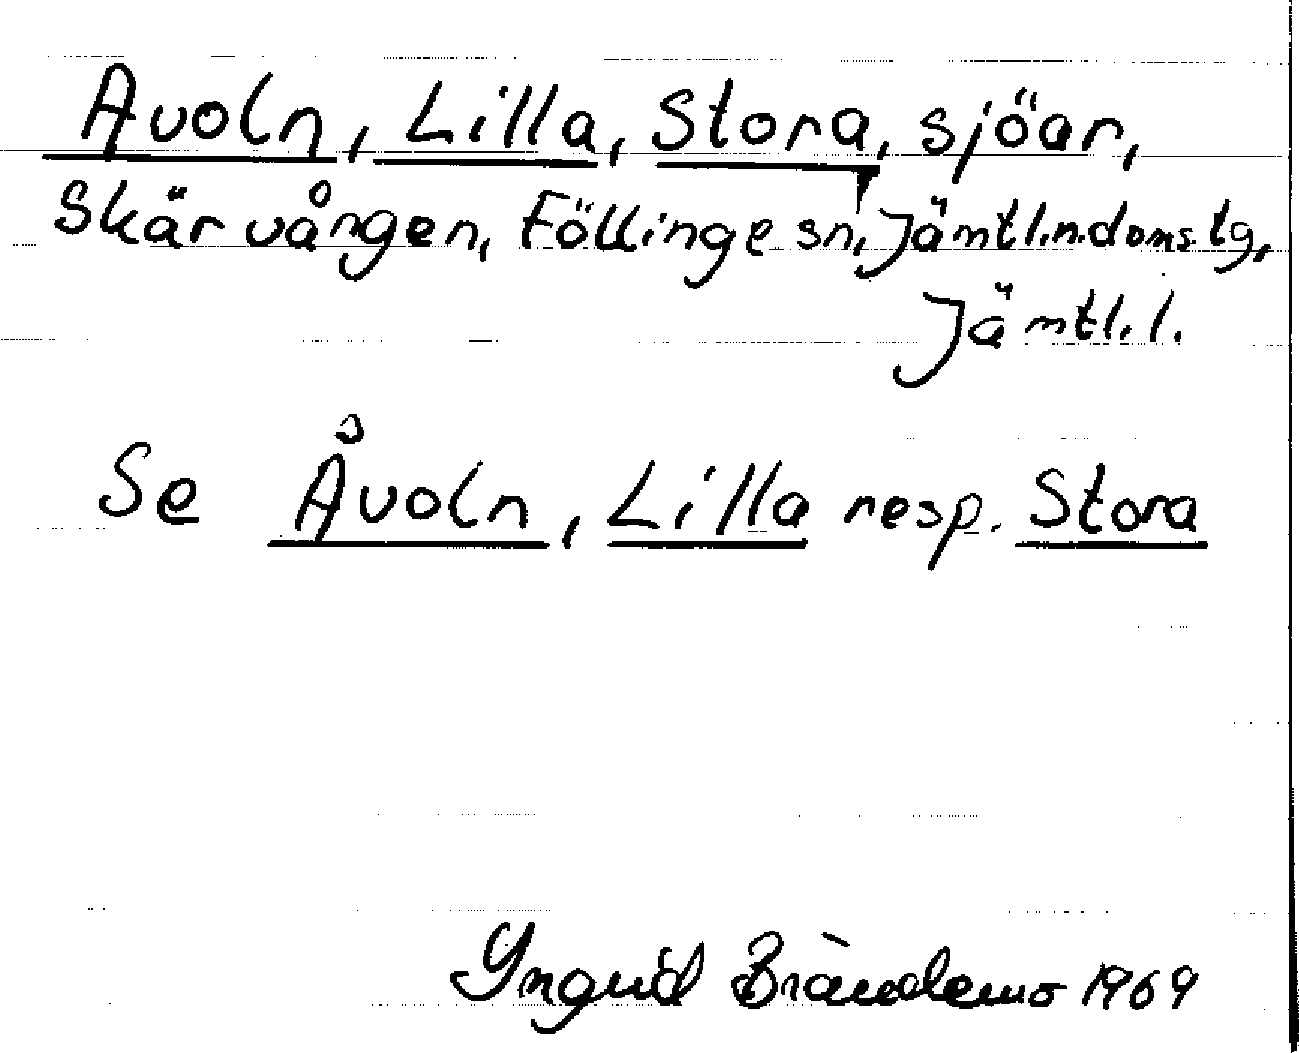 Avoln, Lilla, Stora, sjöar,
Skärvången, Föllinge sn, Jämtl.n.doms.tg,
Jämtl.l.
Se Åvoln, Lilla resp. Stora
Yngvild Brändemo 1969